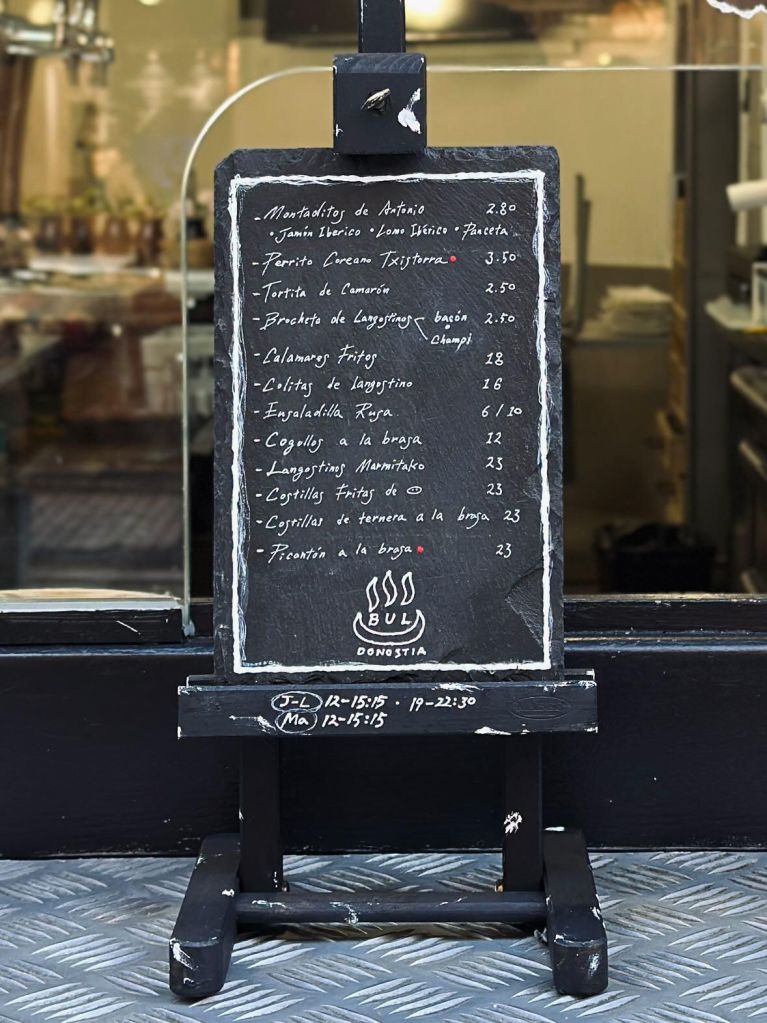 - Montaditos de Antonio 2.80
• Jamón Iberico • Lomo Ibérico • Panceta
- Perrito Coreano Txistorra 3.50
- Tortita de Camarón 2.50
- Brocheta de Langostinos bacón 2.50
champi
- Calamares Fritos 18
- Colitas de langostino 16
- Ensaladilla Rusa 6/10
- Cogollos a la brasa 12
- Langostinos Marmitako 23
- Costillas Fritas de 23
- Costillas de ternera a la brasa 23
- Picantón a la brasa 23
BUL
DONOSTIA
J-L 12-15:15 · 19-22:30
Ma 12-15:15